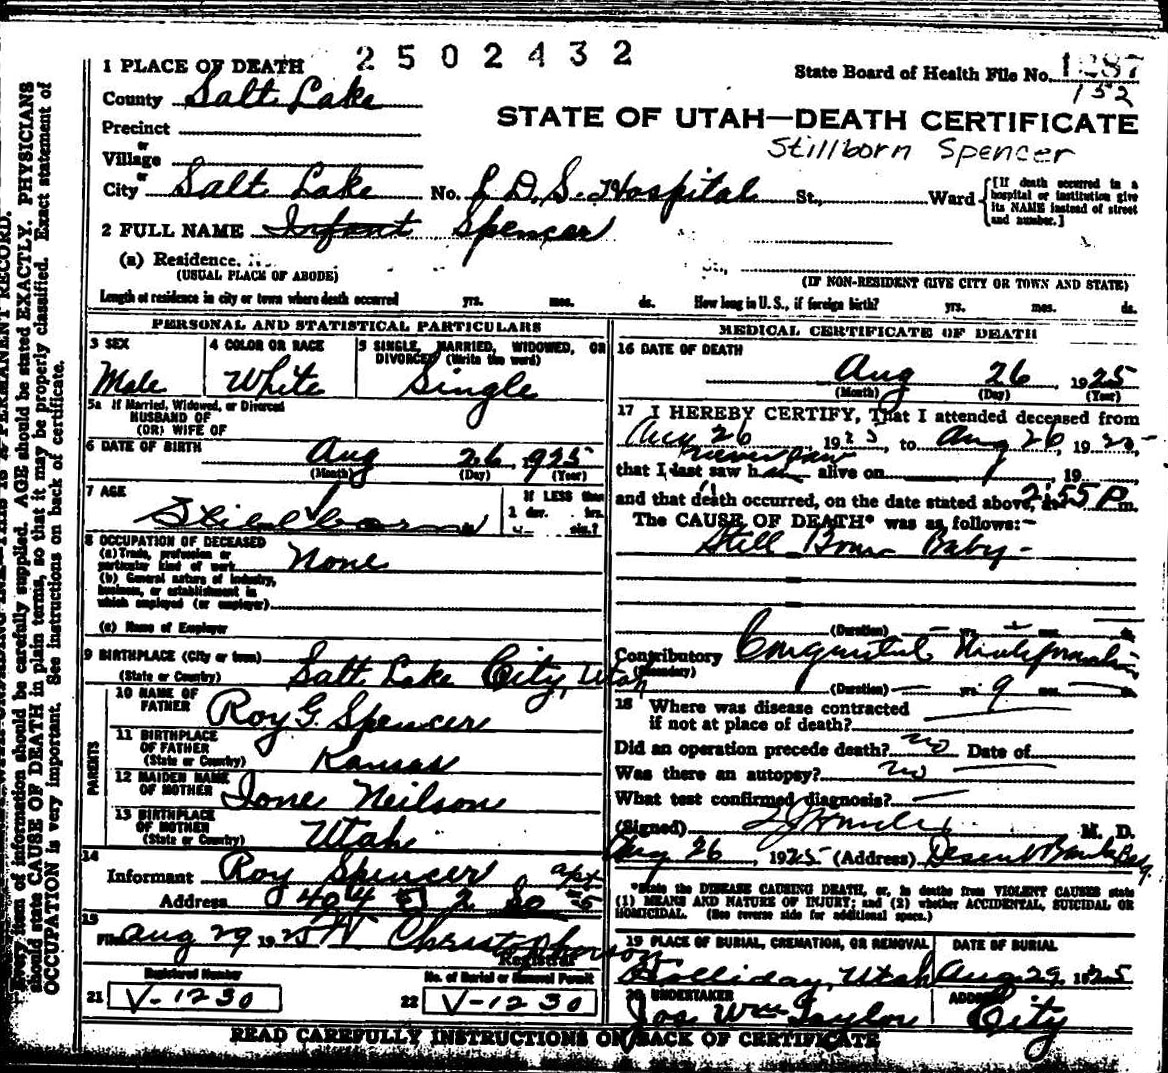 2502432
State Board of Health File No. 1287
152
1 PLACE OF DEATH
County Salt Lake
STATE OF UTAH—DEATH CERTIFICATE
Stillborn Spencer
Precinct
or
Village
or
City Salt Lake No. L.D.S. Hospital St., Ward
[If death occurred in a
hospital or institution give
its NAME instead of street
and number.]
2 FULL NAME Infant Spencer
(a) Residence. No. St.,
(USUAL PLACE OF ABODE) (IF NON-RESIDENT GIVE CITY OR TOWN AND STATE)
Length of residence in city or town where death occurred yrs. mos. ds. How long in U. S., if foreign birth? yrs. mos. ds.
PERSONAL AND STATISTICAL PARTICULARS
3 SEX
Male
4 COLOR OR RACE
White
5 SINGLE, MARRIED, WIDOWED, OR
DIVORCED (Write the word)
Single
5a If Married, Widowed, or Divorced
HUSBAND OF
(OR) WIFE OF
6 DATE OF BIRTH Aug 26, 1925
(Month) (Day) (Year)
7 AGE
Stillborn
If LESS than
1 day, hrs.
min.?
8 OCCUPATION OF DECEASED
(a) Trade, profession or
particular kind of work None
(b) General nature of industry,
business, or establishment in
which employed (or employer)
(c) Name of Employer
9 BIRTHPLACE (City or town)
(State or Country) Salt Lake City, Utah
PARENTS
10 NAME OF
FATHER Roy G. Spencer
11 BIRTHPLACE
OF FATHER
(State or Country) Kansas
12 MAIDEN NAME
OF MOTHER Ione Neilson
13 BIRTHPLACE
OF MOTHER
(State or Country) Utah
14
Informant Roy Spencer apt
Address 404 E 2 So 5
15
Filed Aug 29 1925 W Christopherson
Registrar
Registered Number
21 V-1230
No. of Burial or Removal Permit
22 V-1230
MEDICAL CERTIFICATE OF DEATH
16 DATE OF DEATH
Aug 26, 1925
(Month) (Day) (Year)
17 I HEREBY CERTIFY, That I attended deceased from
Aug 26 1925, to Aug 26, 1925,
never saw
that I last saw h alive on 19
and that death occurred, on the date stated above, at 2:55 P m.
The CAUSE OF DEATH* was as follows:—
Still Born Baby-
(Duration) yrs. mos. ds.
Contributory Congenital Malformation
(Secondary)
(Duration) yrs. 9 mos. ds.
18 Where was disease contracted
if not at place of death?
Did an operation precede death? no Date of
Was there an autopsy? no
What test confirmed diagnosis?
(Signed) M. D.
Aug 26, 1925 (Address) Deseret Bank Bldg.
*State the DISEASE CAUSING DEATH, or, in deaths from VIOLENT CAUSES state
(1) MEANS AND NATURE OF INJURY; and (2) whether ACCIDENTAL, SUICIDAL OR
HOMICIDAL. (See reverse side for additional space.)
19 PLACE OF BURIAL, CREMATION, OR REMOVAL
Holliday, Utah
DATE OF BURIAL
Aug 29, 1925
20 UNDERTAKER
Jos. Wm Taylor
ADDRESS
City
READ CAREFULLY INSTRUCTIONS ON BACK OF CERTIFICATE
PERMANENT RECORD.
Every item of information should be carefully supplied. AGE should be stated EXACTLY. PHYSICIANS
should state CAUSE OF DEATH in plain terms, so that it may be properly classified. Exact statement of
OCCUPATION is very important. See instructions on back of certificate.